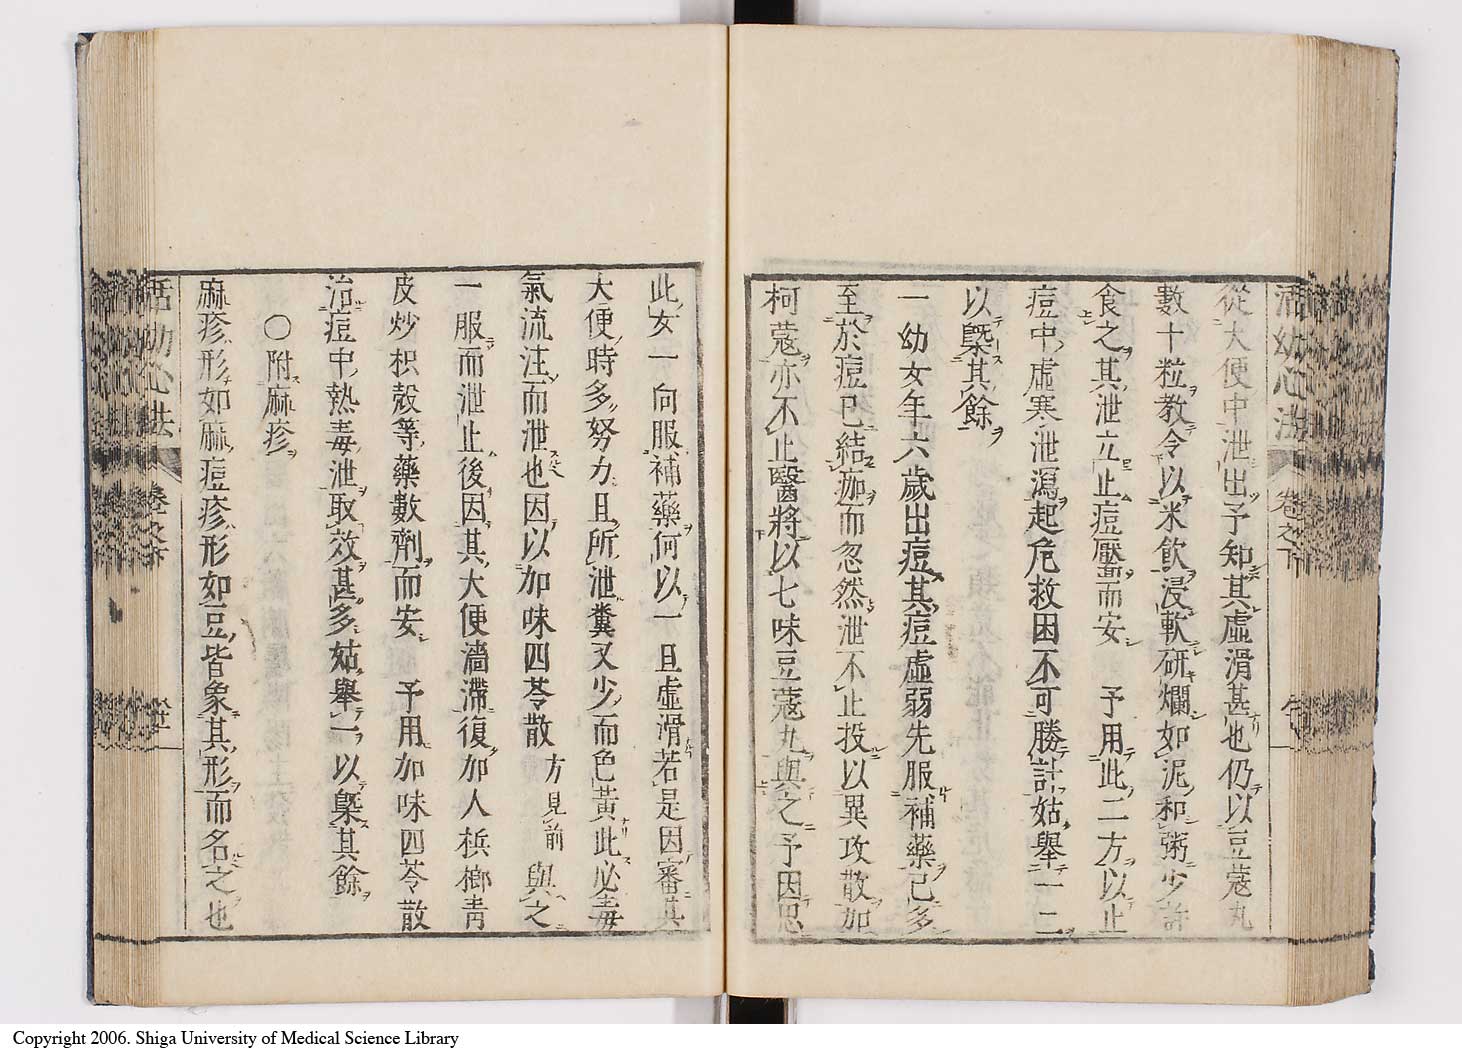 活幼心法 卷之下
從大便中泄出予知其虛滑甚也仍以豆蔻丸
數十粒教令以米飲浸軟研爛如泥和粥少許
食之其泄立止痘靨而安 予用此二方以止
痘中虛寒泄瀉起危救困不可勝計姑舉一二
以槩其餘
一幼女年六歲出痘其痘虛弱先服補藥已多
至於痘已結痂而忽然泄不止投以異攻散加
柯蔻亦不止醫將以七味豆蔻丸與之予因思
此女一向服補藥何以一旦虛滑若是因審其
大便時多努力且所泄糞又少而色黃此必毒
氣流注而泄也因以加味四苓散方見前與之
一服而泄止後因其大便濇滯復加人檳榔青
皮炒枳殼等藥數劑而安 予用加味四苓散
治痘中熱毒泄取效甚多姑舉一以槩其餘
〇附麻疹
麻疹形如麻痘疹形如豆皆象其形而名之也
活幼心法 卷之下
Copyright 2006. Shiga University of Medical Science Library